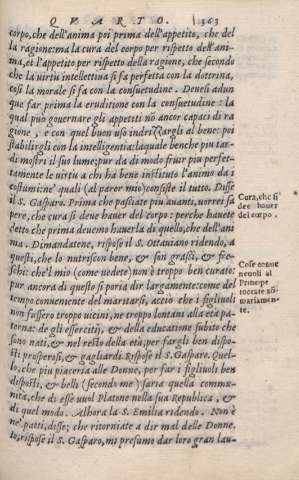 QVARTO. 363
corpo, che dell'anima poi prima dell'appetito, che del
la ragione: ma la cura del corpo per rispetto dell'ani-
ma, et l'appetito per rispetto della ragione, che secondo
che la uirtu intellettiua si fa perfetta con la dottrina,
così la morale si fa con la consuetudine. Deuesi adun
que far prima la eruditione con la consuetudine: la
qual può gouernare gli appetiti nō ancor capaci di ra
gione, e con quel buon uso indrizzargli al bene: poi
stabilirgli con la intelligentia: laquale benche piu tar-
di mostri il suo lume; pur da di modo fruir piu perfet-
tamente le uirtu a chi ha bene instituto l'animo da i
costumi: ne' quali (al parer mio) consiste il tutto. Disse
il S. Gasparo. Prima che passiate piu auanti, uorrei sa
pere, che cura si deue hauer del corpo: perche hauete
detto che prima deuemo hauerla di quello, che dell'ani
ma. Dimandatene, rispose il S. Ottauiano ridendo, a
questi, che lo nutriscon bene, & son grassi, & fre-
schi: che'l mio (come uedete) non è troppo ben curato:
pur ancora di questo si poria dir largamente: come del
tempo conueniente del maritarsi, acciò che i figliuoli
non fussero troppo uicini, ne troppo lontani alla età pa-
terna: de gli essercitij, & della educatione subito che
sono nati, & nel resto della età, per fargli ben dispo-
sti prosperosi, & gagliardi. Rispose il S. Gasparo. Quel-
lo, che piu piaceria alle Donne, per far i figliuoli ben
disposti, & belli (secondo me) saria quella commu-
nita, che di esse uuol Platone nella sua Republica, &
di quel modo. Alhora la S. Emilia ridendo. Non è
ne' patti, disse; che ritornate a dir mal delle Donne.
Io, rispose il S. Gasparo, mi presumo dar loro gran lau-
Cura, che si
dee hauer
del corpo.
Cose conue
neuoli al
Principe
toccate sō
mariamen-
te.